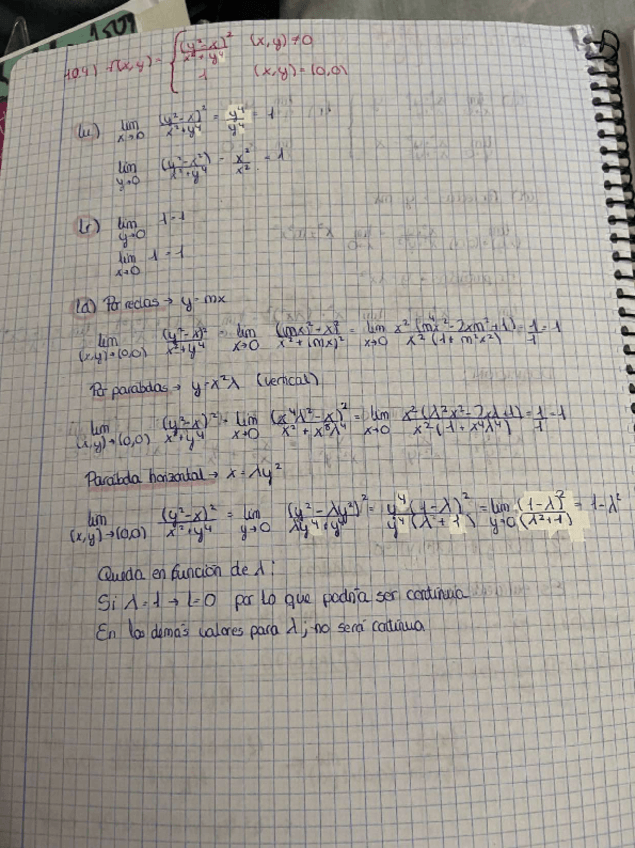 150g
10,4) f(x,y) = { (y²-x)²/(x²+y⁴) (x,y) ≠ 0
1 (x,y) = (0,0)
lim x→0 (y²-x)²/(x²+y⁴) = y⁴/y⁴ = 1
lim y→0 (y²-x²)/(x²+y⁴) = x²/x² = 1
(r) lim y→0 1=1
lim x→0 1=1
(a) Por rectas → y=mx
lim (x,y)→(0,0) (y²-x)²/(x²+y⁴) = lim x→0 ((mx)²-x)²/(x²+(mx)²) = lim x→0 x²(m⁴x²-2xm²+1)/x²(1+m²x²) = 1/1 = 1
Por parabolas → y=x²λ (vertical)
lim (x,y)→(0,0) (y²-x)²/(x²+y⁴) = lim x→0 (x⁴λ²-x)²/(x²+x⁸λ⁴) = lim x→0 x²(λ²x²-2xλ+1)/x²(1+x⁴λ⁴) = 1/1 = 1
Parabola horizontal → x=λy²
lim (x,y)→(0,0) (y²-x)²/(x²+y⁴) = lim y→0 (y²-λy²)²/(λy⁴+y⁴) = y⁴(1-λ)²/y⁴(λ²+1) = lim y→0 (1-λ)²/(λ²+1) = 1-λ²
Queda en función de λ:
Si λ=1 → L=0 por lo que podría ser continua
En los demás valores para λ; no será continua